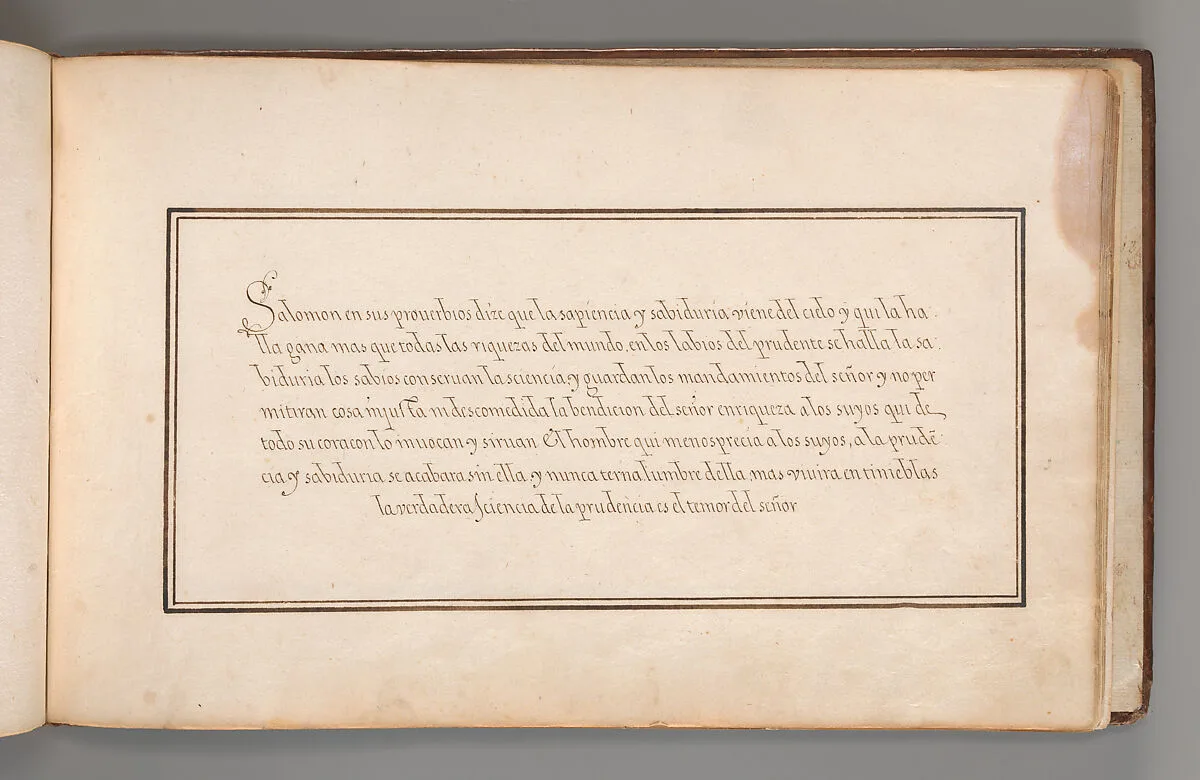 Salomon en sus prouerbios dize que la sapiencia y sabiduria viene del cielo y qui la ha
lla gana mas que todas las riquezas del mundo, en los labios del prudente se halla la sa
biduria los sabios conseruan la sciencia y guardan los mandamientos del señor y no per
mitiran cosa injusta ni descomedida la bendicion del señor enriqueza a los suyos qui de
todo su coracon lo inuocan y siruan El hombre qui menosprecia a los suyos, a la prudē
cia y sabiduria se acabara sin ella y nunca terna lumbre della, mas viuira en tinieblas
la verdadera sciencia de la prudencia es el temor del señor